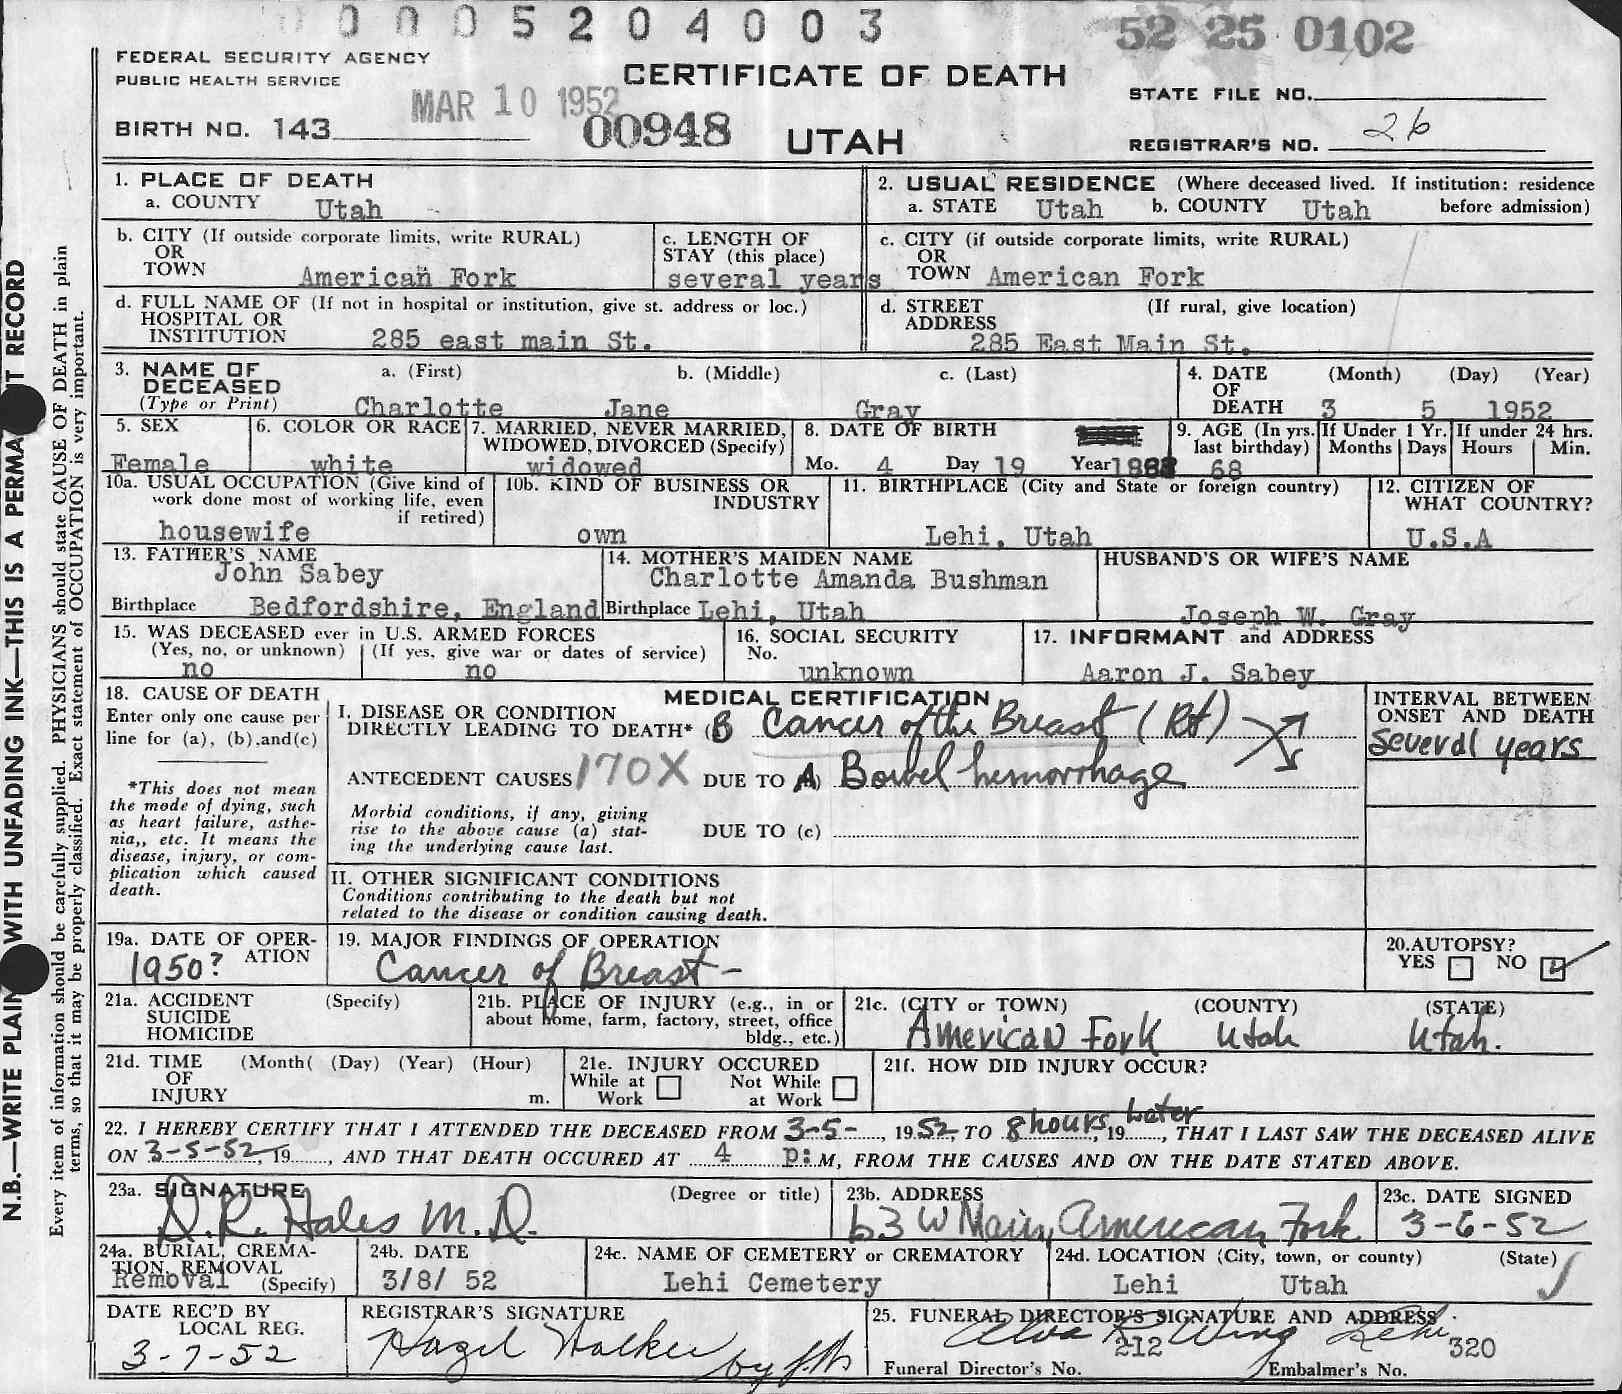 0 0 0 5 2 0 4 0 0 3
52 25 0102
FEDERAL SECURITY AGENCY
PUBLIC HEALTH SERVICE
CERTIFICATE OF DEATH
STATE FILE NO.
MAR 10 1952
BIRTH NO. 143
00948
UTAH
REGISTRAR'S NO. 26
1. PLACE OF DEATH
a. COUNTY Utah
2. USUAL RESIDENCE (Where deceased lived. If institution: residence before admission)
a. STATE Utah b. COUNTY Utah
b. CITY (If outside corporate limits, write RURAL)
OR
TOWN American Fork
c. LENGTH OF
STAY (this place)
several years
c. CITY (if outside corporate limits, write RURAL)
OR
TOWN American Fork
d. FULL NAME OF (If not in hospital or institution, give st. address or loc.)
HOSPITAL OR
INSTITUTION 285 east main St.
d. STREET (If rural, give location)
ADDRESS
285 East Main St.
3. NAME OF
DECEASED
(Type or Print)
a. (First) b. (Middle) c. (Last)
Charlotte Jane Gray
4. DATE
OF
DEATH
(Month) (Day) (Year)
3 5 1952
5. SEX
Female
6. COLOR OR RACE
white
7. MARRIED, NEVER MARRIED,
WIDOWED, DIVORCED (Specify)
widowed
8. DATE OF BIRTH
Mo. 4 Day 19 Year 1883
9. AGE (In yrs.
last birthday)
68
If Under 1 Yr.
Months Days
If under 24 hrs.
Hours Min.
10a. USUAL OCCUPATION (Give kind of
work done most of working life, even
if retired)
housewife
10b. KIND OF BUSINESS OR
INDUSTRY
own
11. BIRTHPLACE (City and State or foreign country)
Lehi, Utah
12. CITIZEN OF
WHAT COUNTRY?
U.S.A
13. FATHER'S NAME
John Sabey
Birthplace Bedfordshire, England
14. MOTHER'S MAIDEN NAME
Charlotte Amanda Bushman
Birthplace Lehi, Utah
HUSBAND'S OR WIFE'S NAME
Joseph W. Gray
15. WAS DECEASED ever in U.S. ARMED FORCES
(Yes, no, or unknown) (If yes, give war or dates of service)
no no
16. SOCIAL SECURITY
No.
unknown
17. INFORMANT and ADDRESS
Aaron J. Sabey
18. CAUSE OF DEATH
Enter only one cause per
line for (a), (b), and (c)
*This does not mean
the mode of dying, such
as heart failure, asthe-
nia,, etc. It means the
disease, injury, or com-
plication which caused
death.
MEDICAL CERTIFICATION
I. DISEASE OR CONDITION
DIRECTLY LEADING TO DEATH* (B Cancer of the Breast (Rt)
ANTECEDENT CAUSES 170X DUE TO A) Bowel hemorrhage
Morbid conditions, if any, giving
rise to the above cause (a) stat-
ing the underlying cause last.
DUE TO (c)
INTERVAL BETWEEN
ONSET AND DEATH
Several years
II. OTHER SIGNIFICANT CONDITIONS
Conditions contributing to the death but not
related to the disease or condition causing death.
19a. DATE OF OPER-
ATION
1950?
19. MAJOR FINDINGS OF OPERATION
Cancer of Breast -
20. AUTOPSY?
YES NO
21a. ACCIDENT (Specify)
SUICIDE
HOMICIDE
21b. PLACE OF INJURY (e.g., in or
about home, farm, factory, street, office
bldg., etc.)
21c. (CITY or TOWN) (COUNTY) (STATE)
American Fork Utah Utah.
21d. TIME (Month( (Day) (Year) (Hour)
OF
INJURY m.
21e. INJURY OCCURED
While at Work
Not While at Work
21f. HOW DID INJURY OCCUR?
22. I HEREBY CERTIFY THAT I ATTENDED THE DECEASED FROM 3-5-, 1952, TO 8 hours later, 19......, THAT I LAST SAW THE DECEASED ALIVE
ON 3-5-52, 19......, AND THAT DEATH OCCURED AT 4 p:M, FROM THE CAUSES AND ON THE DATE STATED ABOVE.
23a. SIGNATURE (Degree or title)
D.R. Hales M.D.
23b. ADDRESS
63 W Main, American Fork
23c. DATE SIGNED
3-6-52
24a. BURIAL, CREMA-
TION, REMOVAL
Removal (Specify)
24b. DATE
3/8/ 52
24c. NAME OF CEMETERY or CREMATORY
Lehi Cemetery
24d. LOCATION (City, town, or county) (State)
Lehi Utah
DATE REC'D BY
LOCAL REG.
3-7-52
REGISTRAR'S SIGNATURE
Hazel Walker
25. FUNERAL DIRECTOR'S SIGNATURE AND ADDRESS
Wing Lehi
212 320
Funeral Director's No. Embalmer's No.
N.B.—WRITE PLAIN WITH UNFADING INK—THIS IS A PERMA T RECORD
Every item of information should be carefully supplied. PHYSICIANS should state CAUSE OF DEATH in plain
terms, so that it may be properly classified. Exact statement of OCCUPATION is very important.